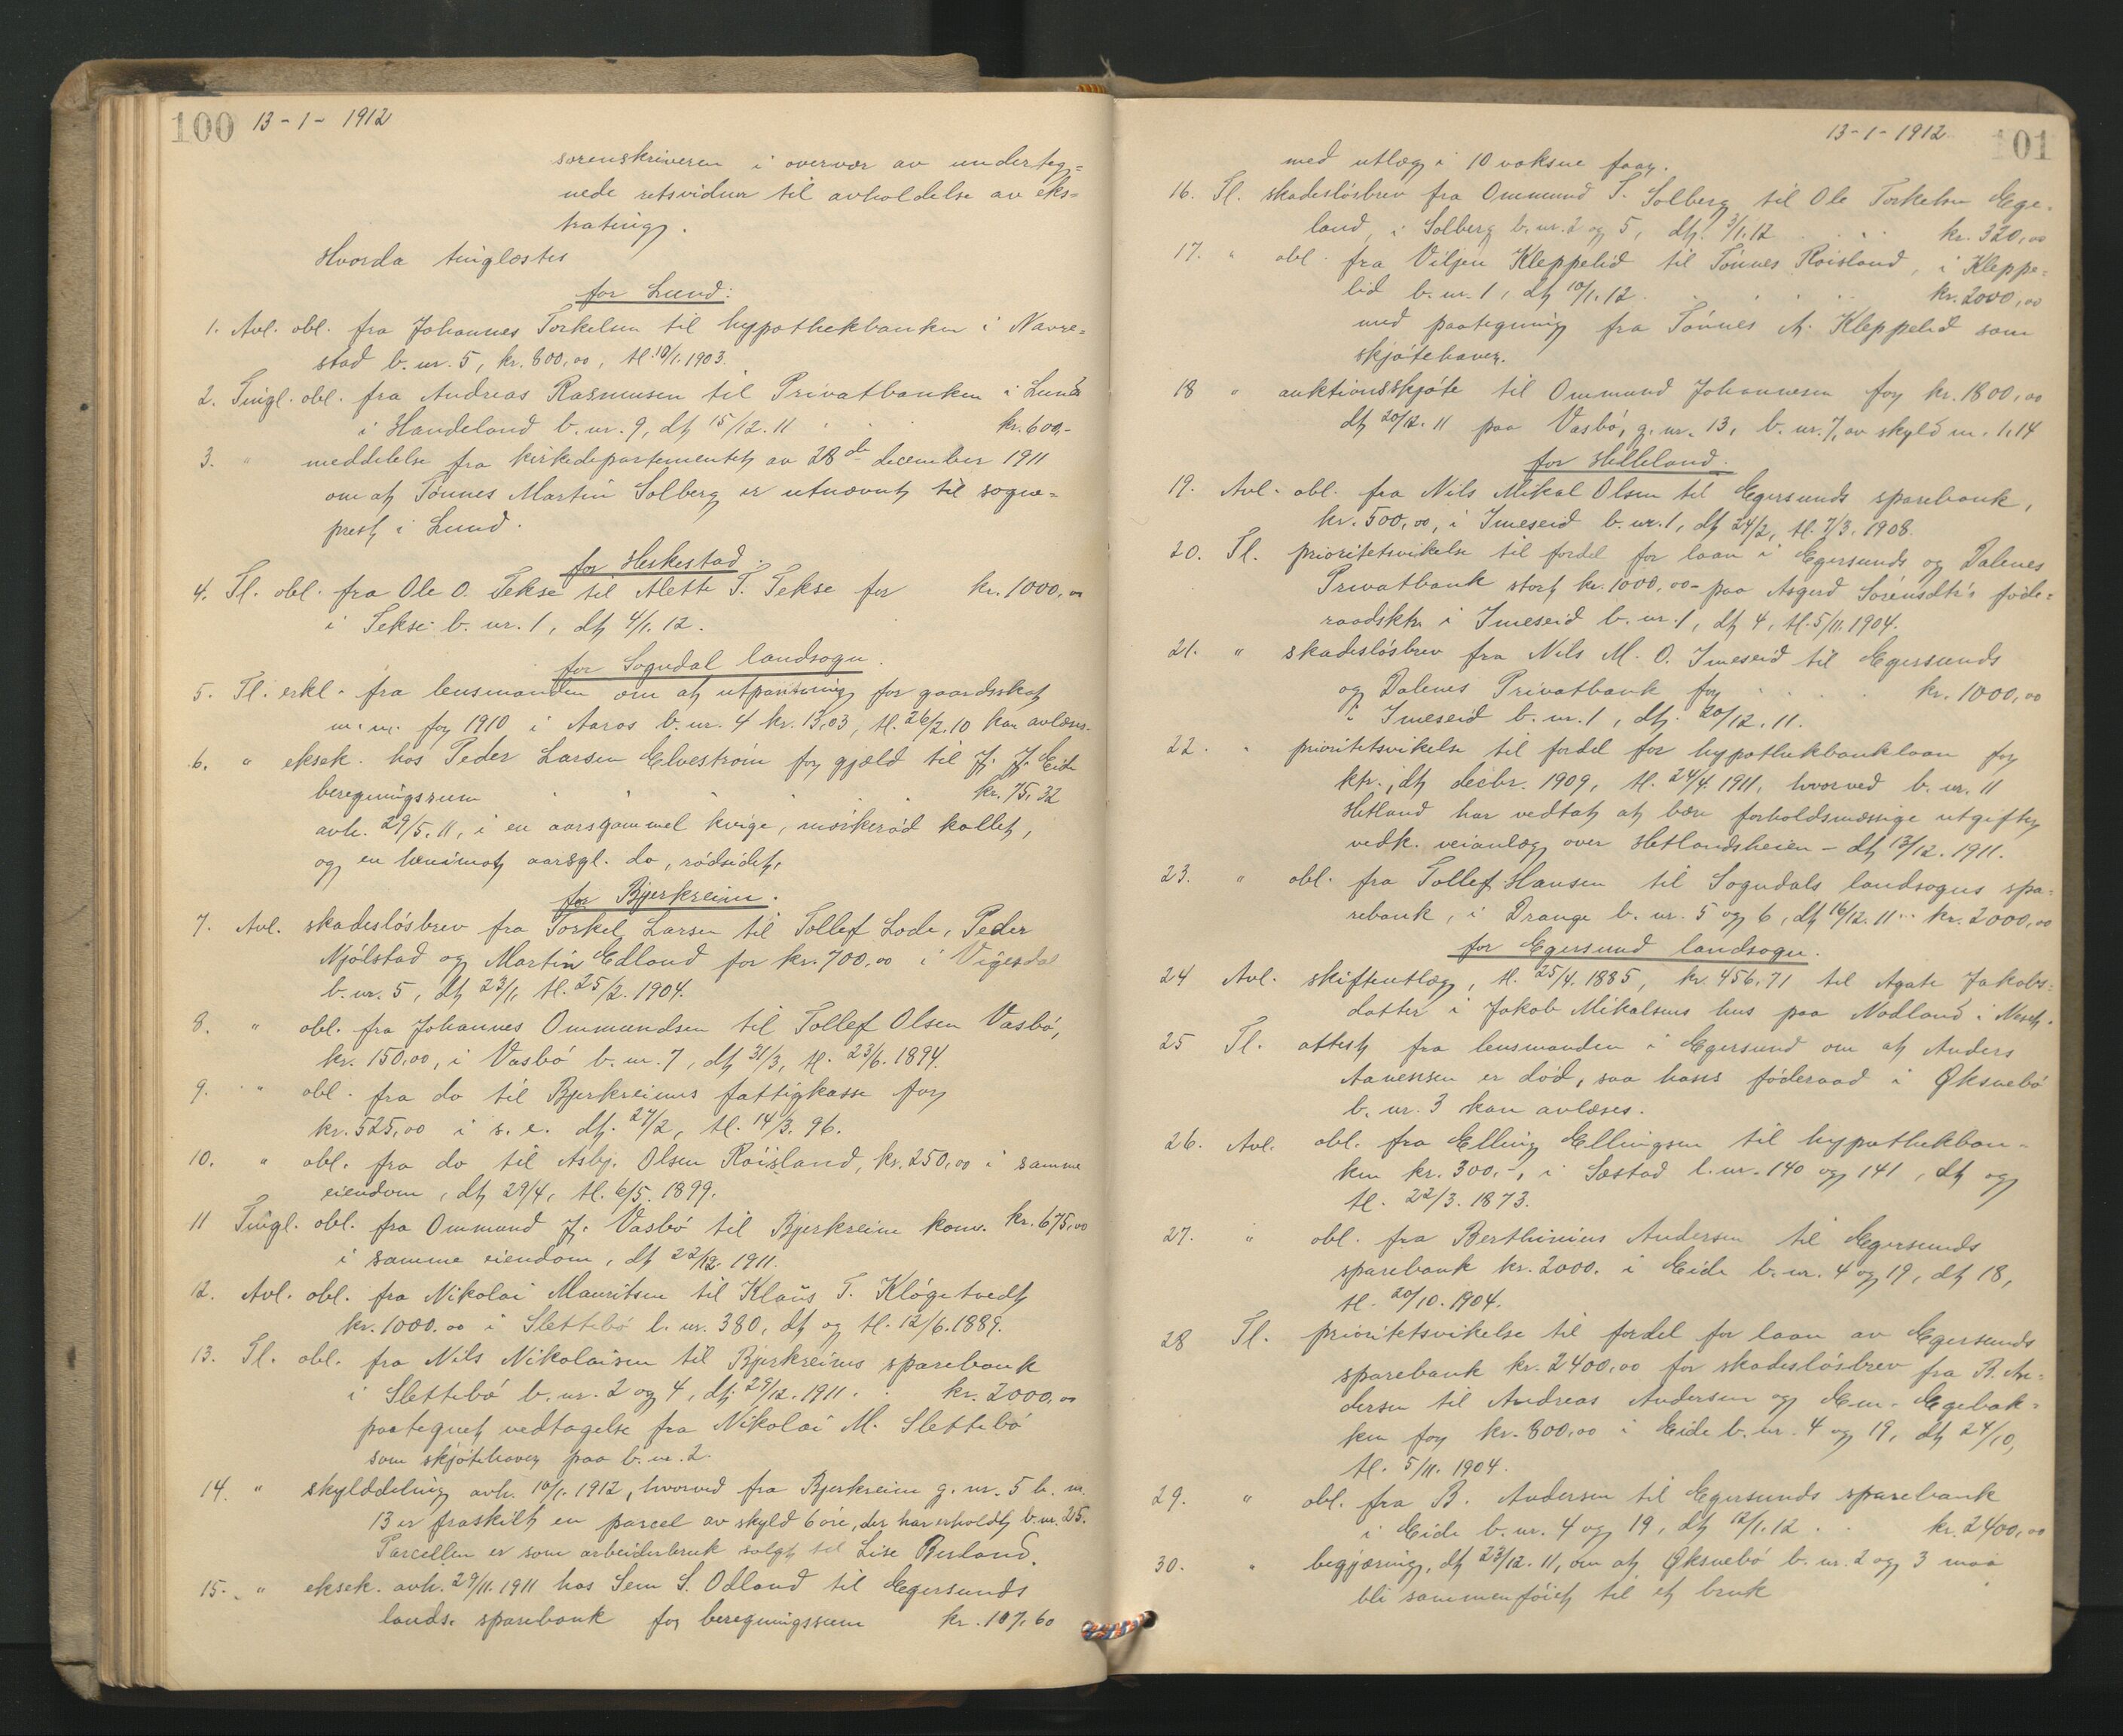 100 13-1-1912
sorenskriveren i overvær av underteg=
nede retsvidner til avholdelse av eks=
trating.
Hvorda tinglæstes
for Lund:
1. Avl. obl. fra Johannes Torkelsen til hypothekbanken i Navre=
stad b.nr. 5, kr. 800,00, tl. 10/1. 1903.
2. Tingl. obl. fra Andreas Rasmusen til Privatbanken i Lund
i Handeland b.nr. 9, dt 15/12. 11 . . kr. 600,-
3. " meddelelse fra kirkedepartementet av 28de december 1911
om at Tønnes Martin Solberg er utnævnt til sogne=
prest i Lund.
for Heskestad.
4. Tl. obl. fra Ole O. Tekse til Alette T. Tekse for kr. 1000,00
i Tekse b.nr. 1, dt 4/1. 12.
for Sogndal landsogn.
5. Tl. erkl. fra lensmanden om at utpantning for gaardsskat
m.m. for 1910 i Aaros b.nr. 4 kr. 13,03, tl. 26/2. 10 kan avlæses.
6. " eksek. hos Peder Larsen Elvestrøm for gjæld til J. J. Eide
beregningssum . . . . kr. 75,32
avh. 29/5. 11, i en aarsgammel kvige, mørkerød kollet,
og en henimot aarsgl. do, rødsidet.
for Bjerkreim.
7. Avl. skadesløsbrev fra Torkel Larsen til Tollef Lode, Peder
Mjølstad og Martin Edland for kr. 700,00 i Vigesdal
b.nr. 5, dt 23/1, tl. 25/2. 1904.
8. " obl. fra Johannes Ommundsen til Tollef Olsen Vasbø,
kr. 150,00, i Vasbø b.nr. 7, dt 31/3, tl. 23/6. 1894.
9. " obl. fra do til Bjerkreims fattigkasse for
kr. 525,00 i s. e. dt. 27/2, tl. 14/3. 96.
10. " obl. fra do til Asbj. Olsen Røisland, kr. 250,00 i samme
eiendom, dt 29/4, tl. 6/5. 1899.
11 Tingl. obl. fra Ommund J. Vasbø til Bjerkreim kom. kr. 675,00
i samme eiendom, dt 22/12. 1911.
12. Avl. obl. fra Nikolai Mauritsen til Klaus T. Kløgetvedt
kr. 1000.00 i Slettebø l.nr. 380, dt og tl. 12/6. 1889.
13. Tl. obl. fra Nils Nikolaisen til Bjerkreims sparebank
i Slettebø b.nr. 2 og 4, dt. 29/12. 1911. . kr. 2000,00
paategnet vedtagelse fra Nikolai M. Slettebø
som skjøtehaver paa b.nr. 2.
14. " skylddeling avh. 10/1. 1912, hvorved fra Bjerkreim g.nr. 5 b.nr.
13 er fraskilt en parcel av skyld 6 øre, der har erholdt b.nr. 25.
Parcellen er som arbeiderbruk solgt til Lise Berland.
15. " eksek. avh. 29/11. 1911 hos Sem S. Odland til Egersunds
lands. sparebank for beregningssum kr. 107,60
13-1-1912 101
med utlæg i 10 voksne faar.
16. Tl. skadesløsbrev fra Ommund T. Solberg til Ole Torkelsen Ege=
land, i Solberg b.nr. 2 og 5, dt. 3/1. 12 . . . kr. 320,00
17. " obl. fra Viljen Kleppelid til Tønnes Røisland, i Kleppe=
lid b.nr. 1, dt 10/1. 12. . . . . kr. 2000,00
med paategning fra Tønnes A. Kleppelid som
skjøtehaver.
18 " auktionsskjøte til Ommund Johannesen for kr. 1800,00
dt 20/12. 11 paa Vasbø, g.nr. 13, b.nr. 7, av skyld m. 1.14
for Helleland.
19. Avl. obl. fra Nils Mikal Olsen til Egersunds sparebank,
kr. 500,00, i Imeseid b.nr. 1, dt 24/2, tl. 7/3. 1908.
20. Tl. prioritetsvikelse til fordel for laan i Egersunds og Dalenes
Privatbank stort kr. 1000.00 - paa Asgerd Sørensdtr's føde=
raadsktr. i Imeseid b.nr. 1, dt 4, tl. 5/11. 1904.
21. " skadesløsbrev fra Nils M. O. Imeseid til Egersunds
og Dalenes Privatbank for . . . . kr. 1000,00
i Imeseid b.nr. 1, dt. 20/12. 11.
22. " prioritetsvikelse til fordel for hypothekbanklaan for
ktr., dt decbr. 1909, tl. 24/4. 1911, hvorved b.nr. 11
Hetland har vedtat at bære forholdsmæssige utgifter
vedk. veianlæg over Hetlandsheien - dt 13/12. 1911.
23. " obl. fra Tollef Hansen til Sogndals landsogns spa=
rebank, i Drange b.nr. 5 og 6, dt 16/12. 11 .. kr. 2000,00
for Egersund landsogn.
24 Avl. skifteutlæg, tl. 25/4. 1885, kr. 456.71 til Agate Jakobs=
datter i Jakob Mikalsens hus paa Nodland i
25 Tl. attest fra lensmanden i Egersund om at Anders
Aanensen er død, saa hans føderaad i Øksnebø
b.nr. 3 kan avlæses.
26. Avl. obl. fra Elling Ellingsen til hypothekban=
ken kr. 300.-, i Sæstad l.nr. 140 og 141, dt og
tl. 22/3. 1873.
27. " obl. fra Berthinius Andersen til Egersunds
sparebank kr. 2000. i Eide b.nr. 4 og 19, dt 18,
tl. 20/10. 1904.
28 Tl. prioritetsvikelse til fordel for laan av Egersunds
sparebank kr. 2400,00 for skadesløsbrev fra B. An=
dersen til Andreas Andersen og Em. Egebak=
ken for kr. 800,00 i Eide b.nr. 4 og 19, dt 24/10,
tl. 5/11. 1904.
29. " obl. fra B. Andersen til Egersunds sparebank
i Eide b.nr. 4 og 19, dt 12/1. 12 . . kr. 2400,00
30. " begjæring, dt 23/12. 11, om at Øksnebø b.nr. 2 og 3 maa
bli sammenføiet til et bruk